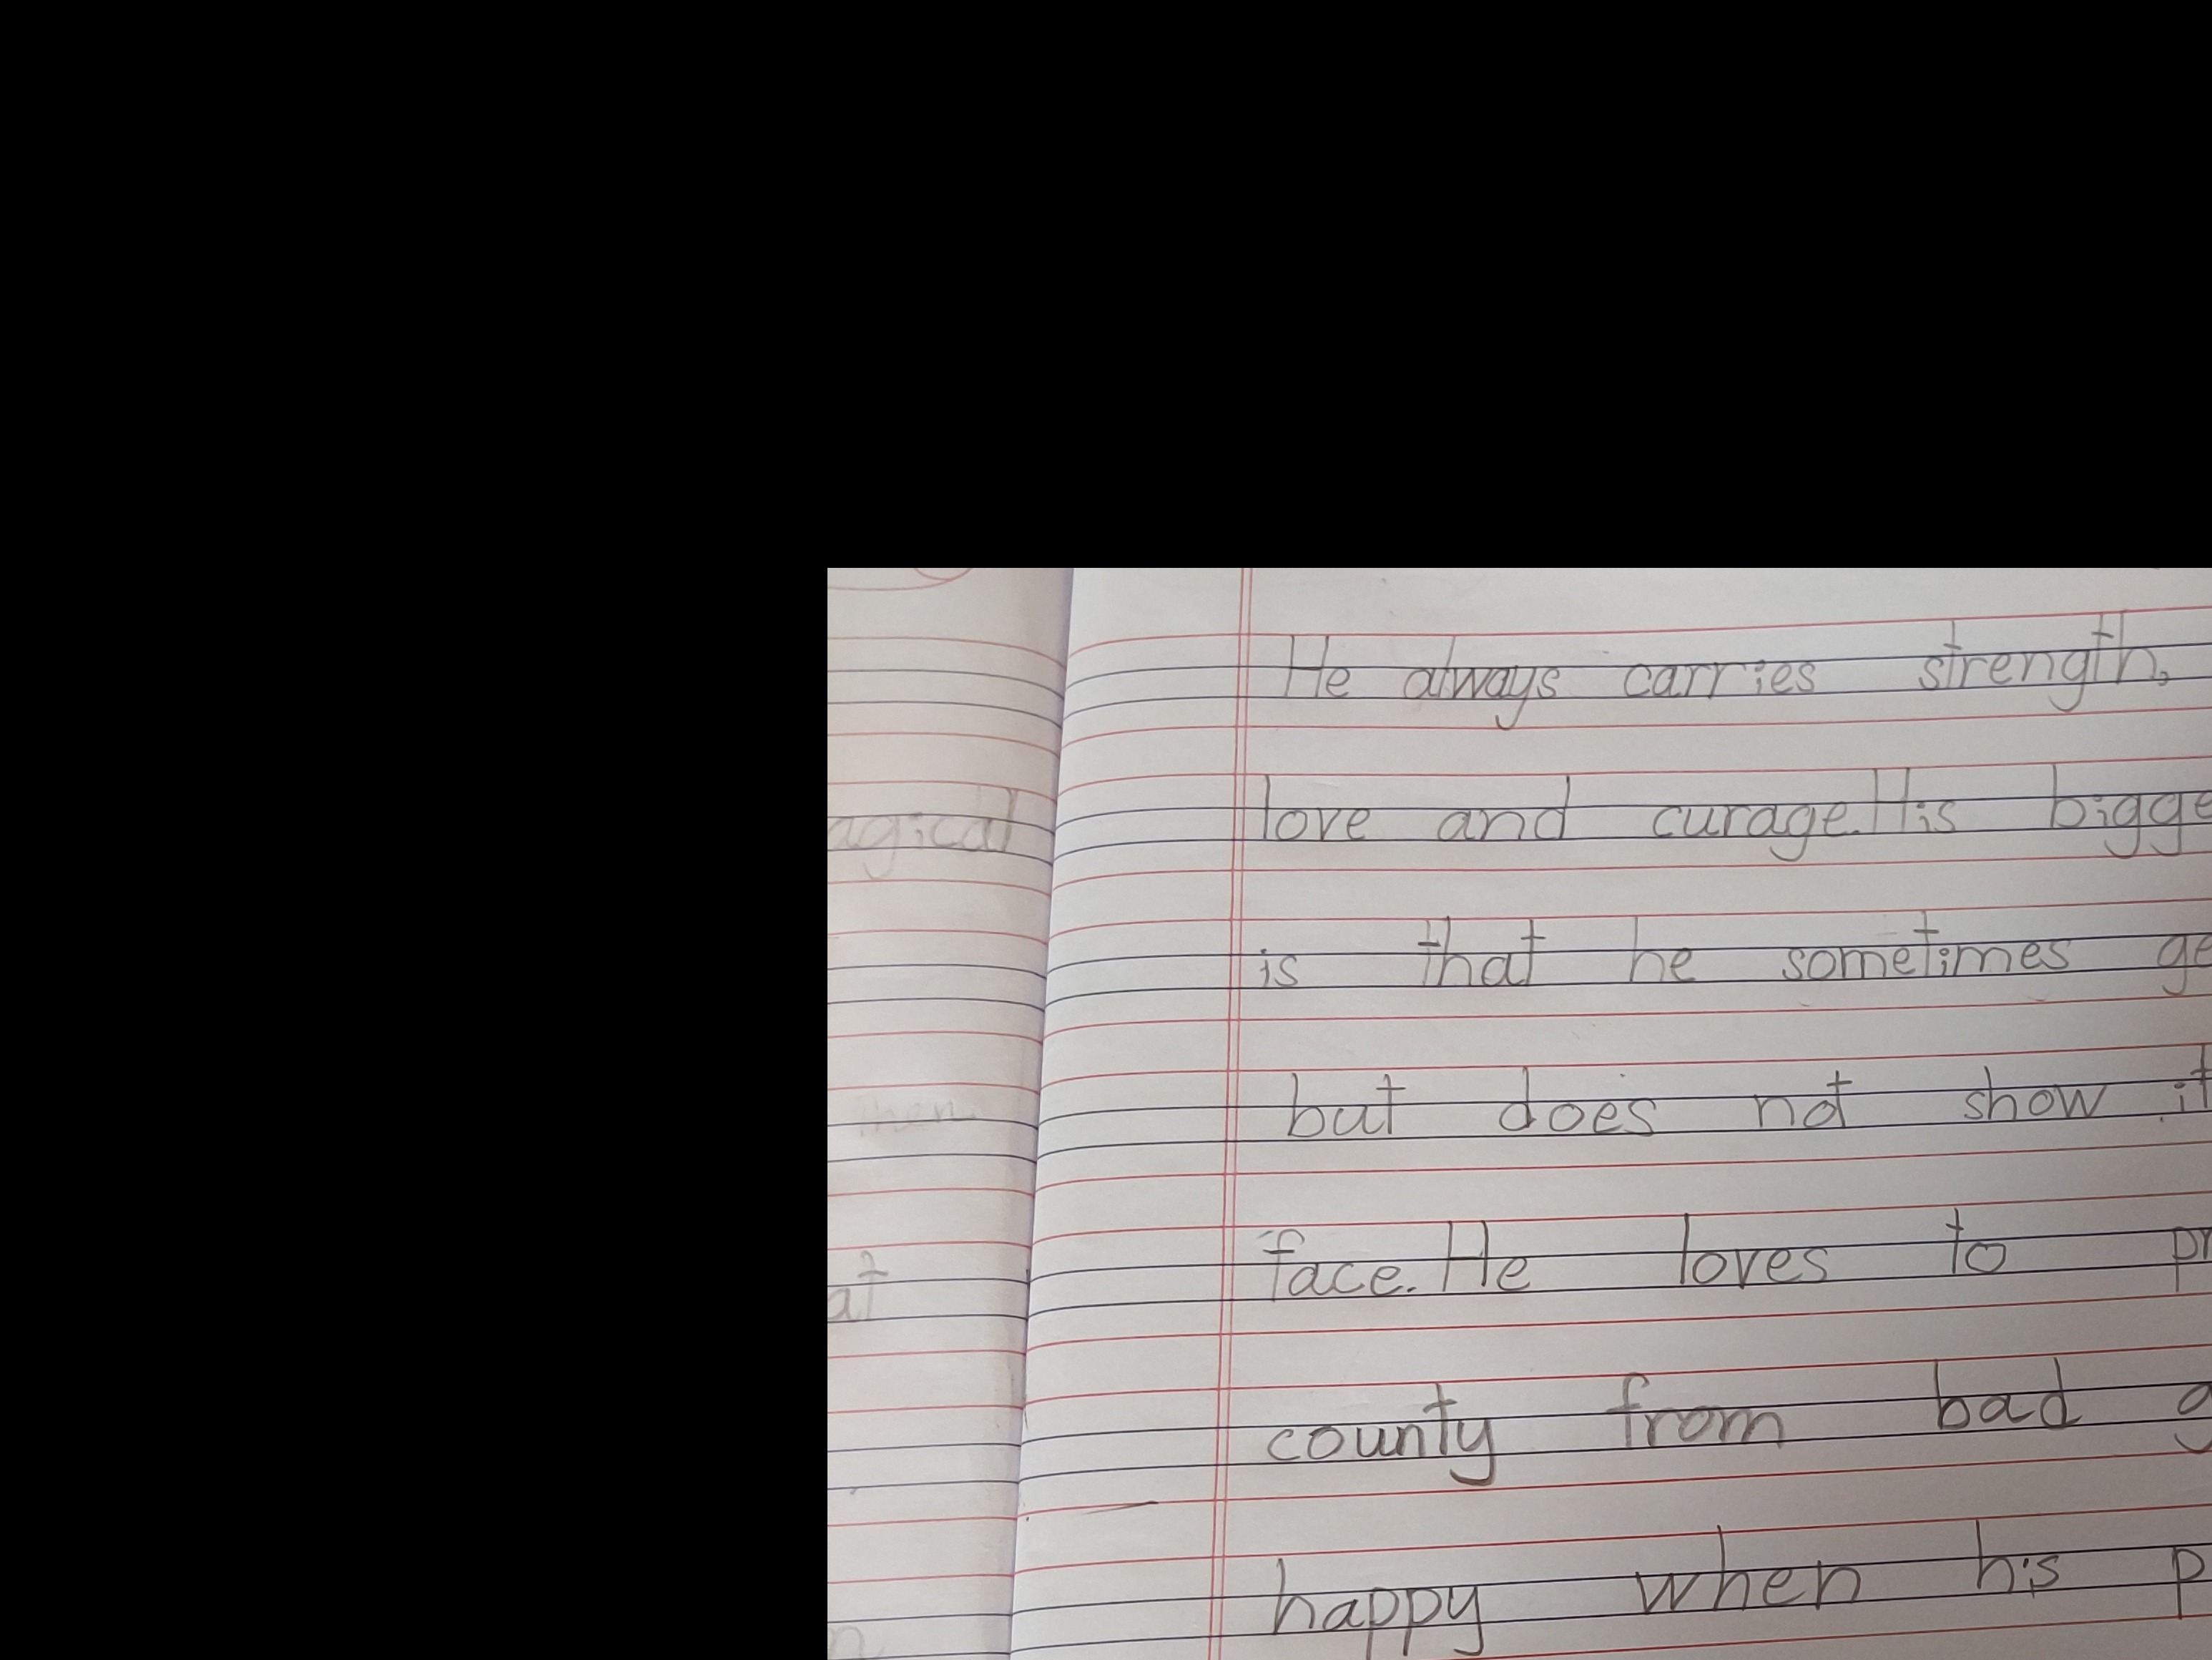 He always carries strength,
love and curage. His bigge
is that he sometimes ge
but does not show it
face. He loves to pr
county from bad g
happy when his p
agical
at